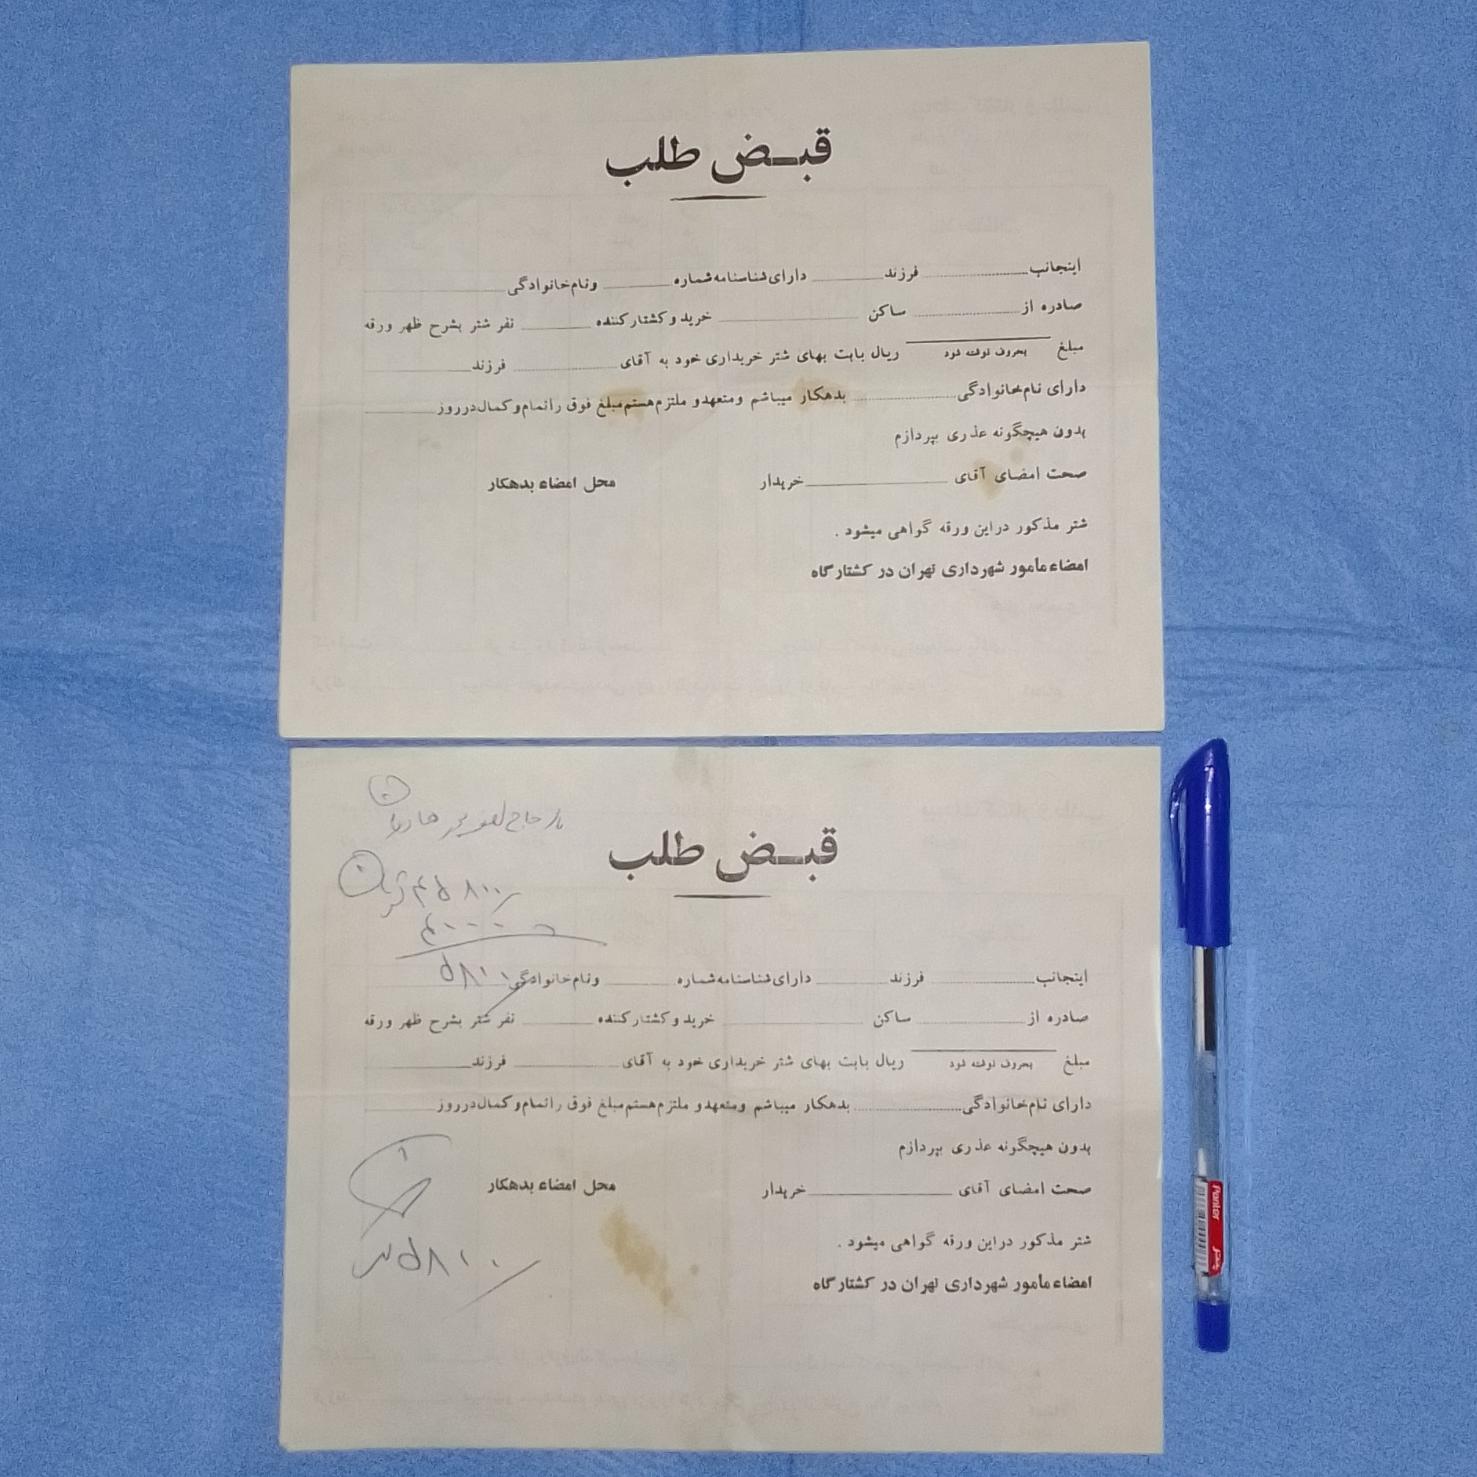 قبـض طلب
اینجانب فرزند دارای شناسنامه شماره ونام خانوادگی
صادره از ساکن خرید و کشتار کننده نفر شتر بشرح ظهر ورقه
مبلغ بحروف نوشته شود ریال بابت بهای شتر خریداری خود به آقای فرزند
دارای نام خانوادگی بدهکار میباشم ومتعهدو ملتزم هستم مبلغ فوق راتمام و کمال در روز
بدون هیچگونه عذری بپردازم
صحت امضای آقای خریدار محل امضاء بدهکار
شتر مذکور دراین ورقه گواهی میشود .
امضاء مأمور شهرداری تهران در کشتارگاه
قبـض طلب
اینجانب فرزند دارای شناسنامه شماره ونام خانوادگی
صادره از ساکن خرید و کشتار کننده نفر شتر بشرح ظهر ورقه
مبلغ بحروف نوشته شود ریال بابت بهای شتر خریداری خود به آقای فرزند
دارای نام خانوادگی بدهکار میباشم ومتعهدو ملتزم هستم مبلغ فوق راتمام و کمال در روز
بدون هیچگونه عذری بپردازم
صحت امضای آقای خریدار محل امضاء بدهکار
شتر مذکور دراین ورقه گواهی میشود .
امضاء مأمور شهرداری تهران در کشتارگاه
Panter
پنتر